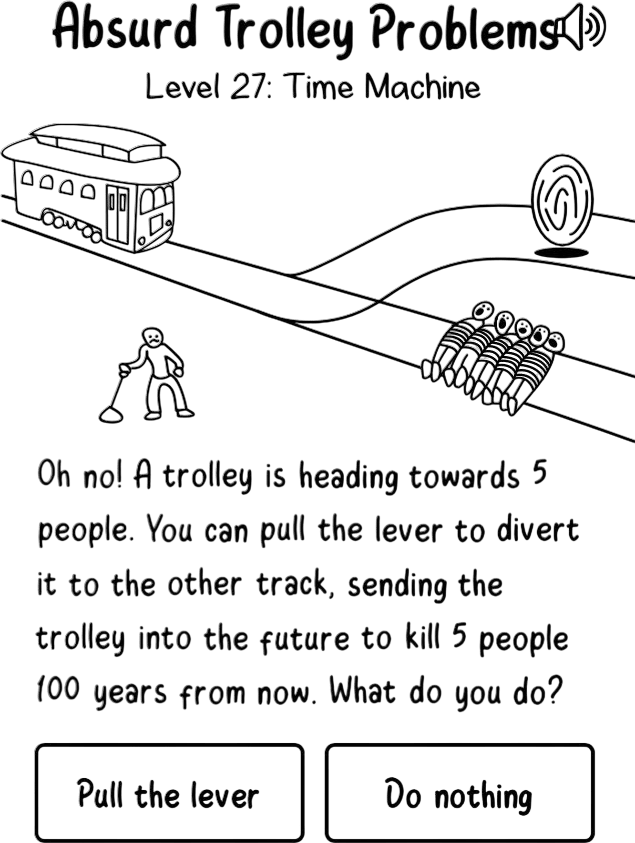 Absurd Trolley Problems
Level 27: Time Machine
Oh no! A trolley is heading towards 5
people. You can pull the lever to divert
it to the other track, sending the
trolley into the future to kill 5 people
100 years from now. What do you do?
Pull the lever
Do nothing